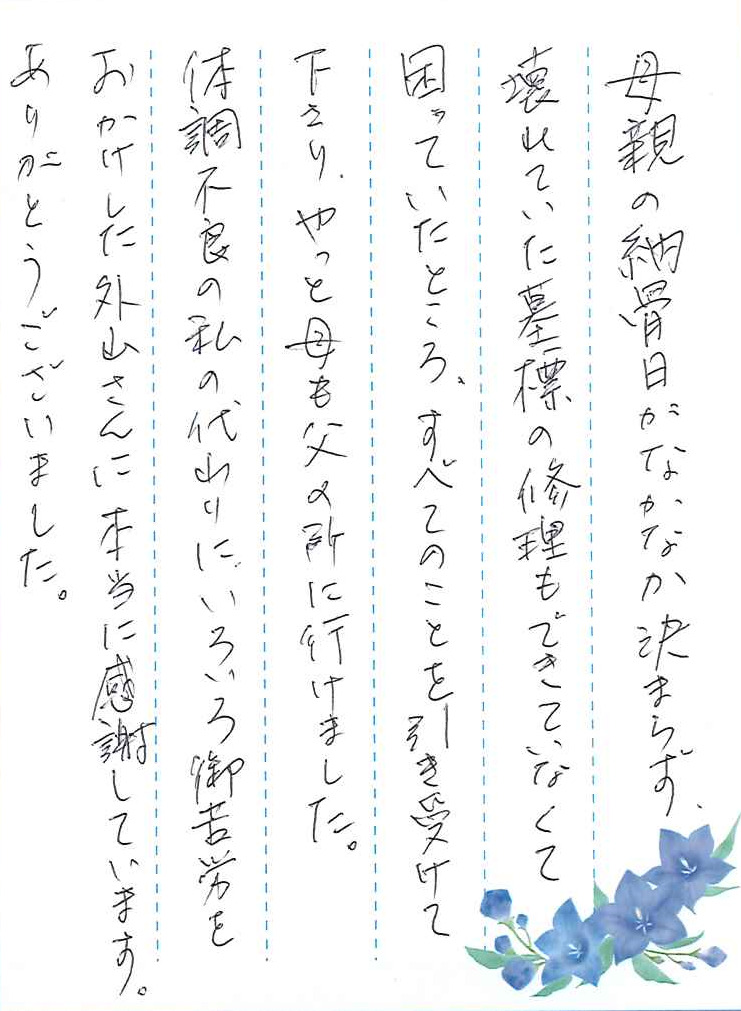 母親の納骨日がなかなか決まらず、
壊れていた墓標の修理もできていなくて
困っていたところ、すべてのことを引き受けて
下さり、やっと母も父の所に行けました。
体調不良の私の代わりに、いろいろ御苦労を
おかけした外山さんに本当に感謝しています。
ありがとうございました。